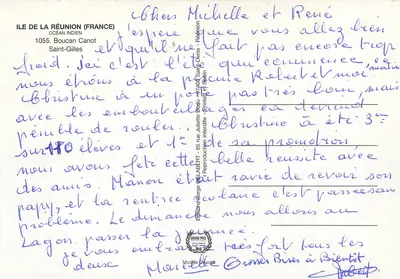 ILE DE LA RÉUNION (FRANCE)
OCÉAN INDIEN
1055. Boucan Canot
Saint-Gilles
Chers Michelle et René
J'espère que vous allez bien
et qu'il ne fait pas encore trop
froid. Ici c'est l'été qui commence
nous étions à la piscine Robert et moi ce matin
Christine a un poste pas très loin, mais
avec les embouteillages ça devient
pénible de rouler. Christine a été 3ème
sur 110 élèves et 1e de sa promotion
nous avons fêté cette belle réussite avec
des amis. Manon était ravie de revoir son
papy, et la rentrée scolaire c'est passée sans
problème. Le dimanche nous allons au
Lagon passer la journée.
je vous embrasse très fort tous les
deux Marcelle Grosses Bises à Bientôt
Robert